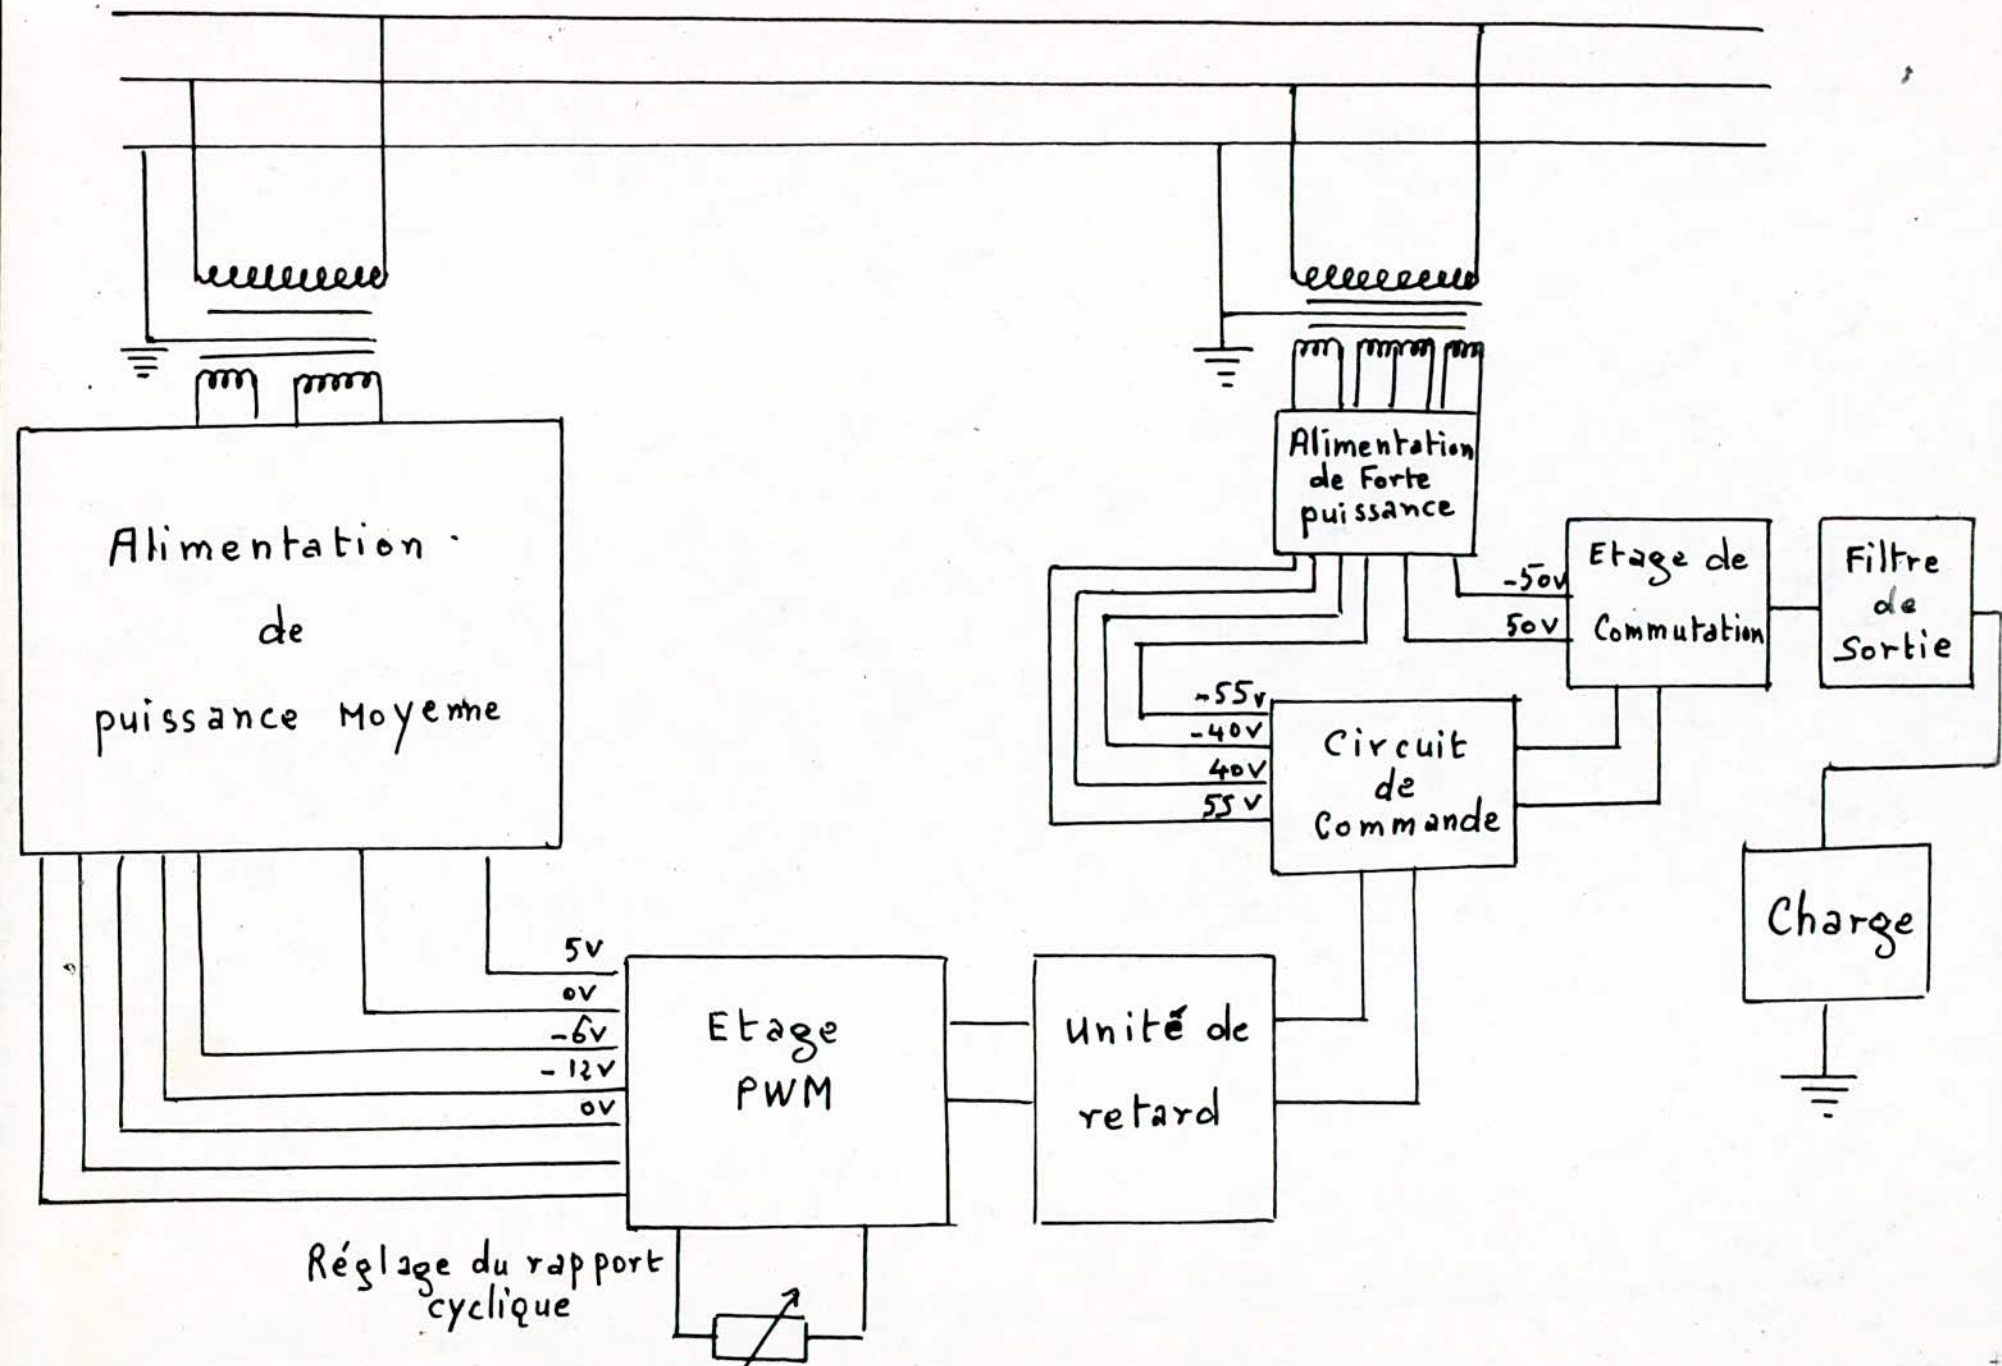 Alimentation
de
puissance Moyenne
Alimentation
de Forte
puissance
-50V
50V
Etage de
Commutation
Filtre
de
Sortie
-55V
-40V
40V
55V
Circuit
de
Commande
Charge
5V
0V
-6V
-12V
0V
Etage
PWM
Unité de
retard
Réglage du rapport
cyclique